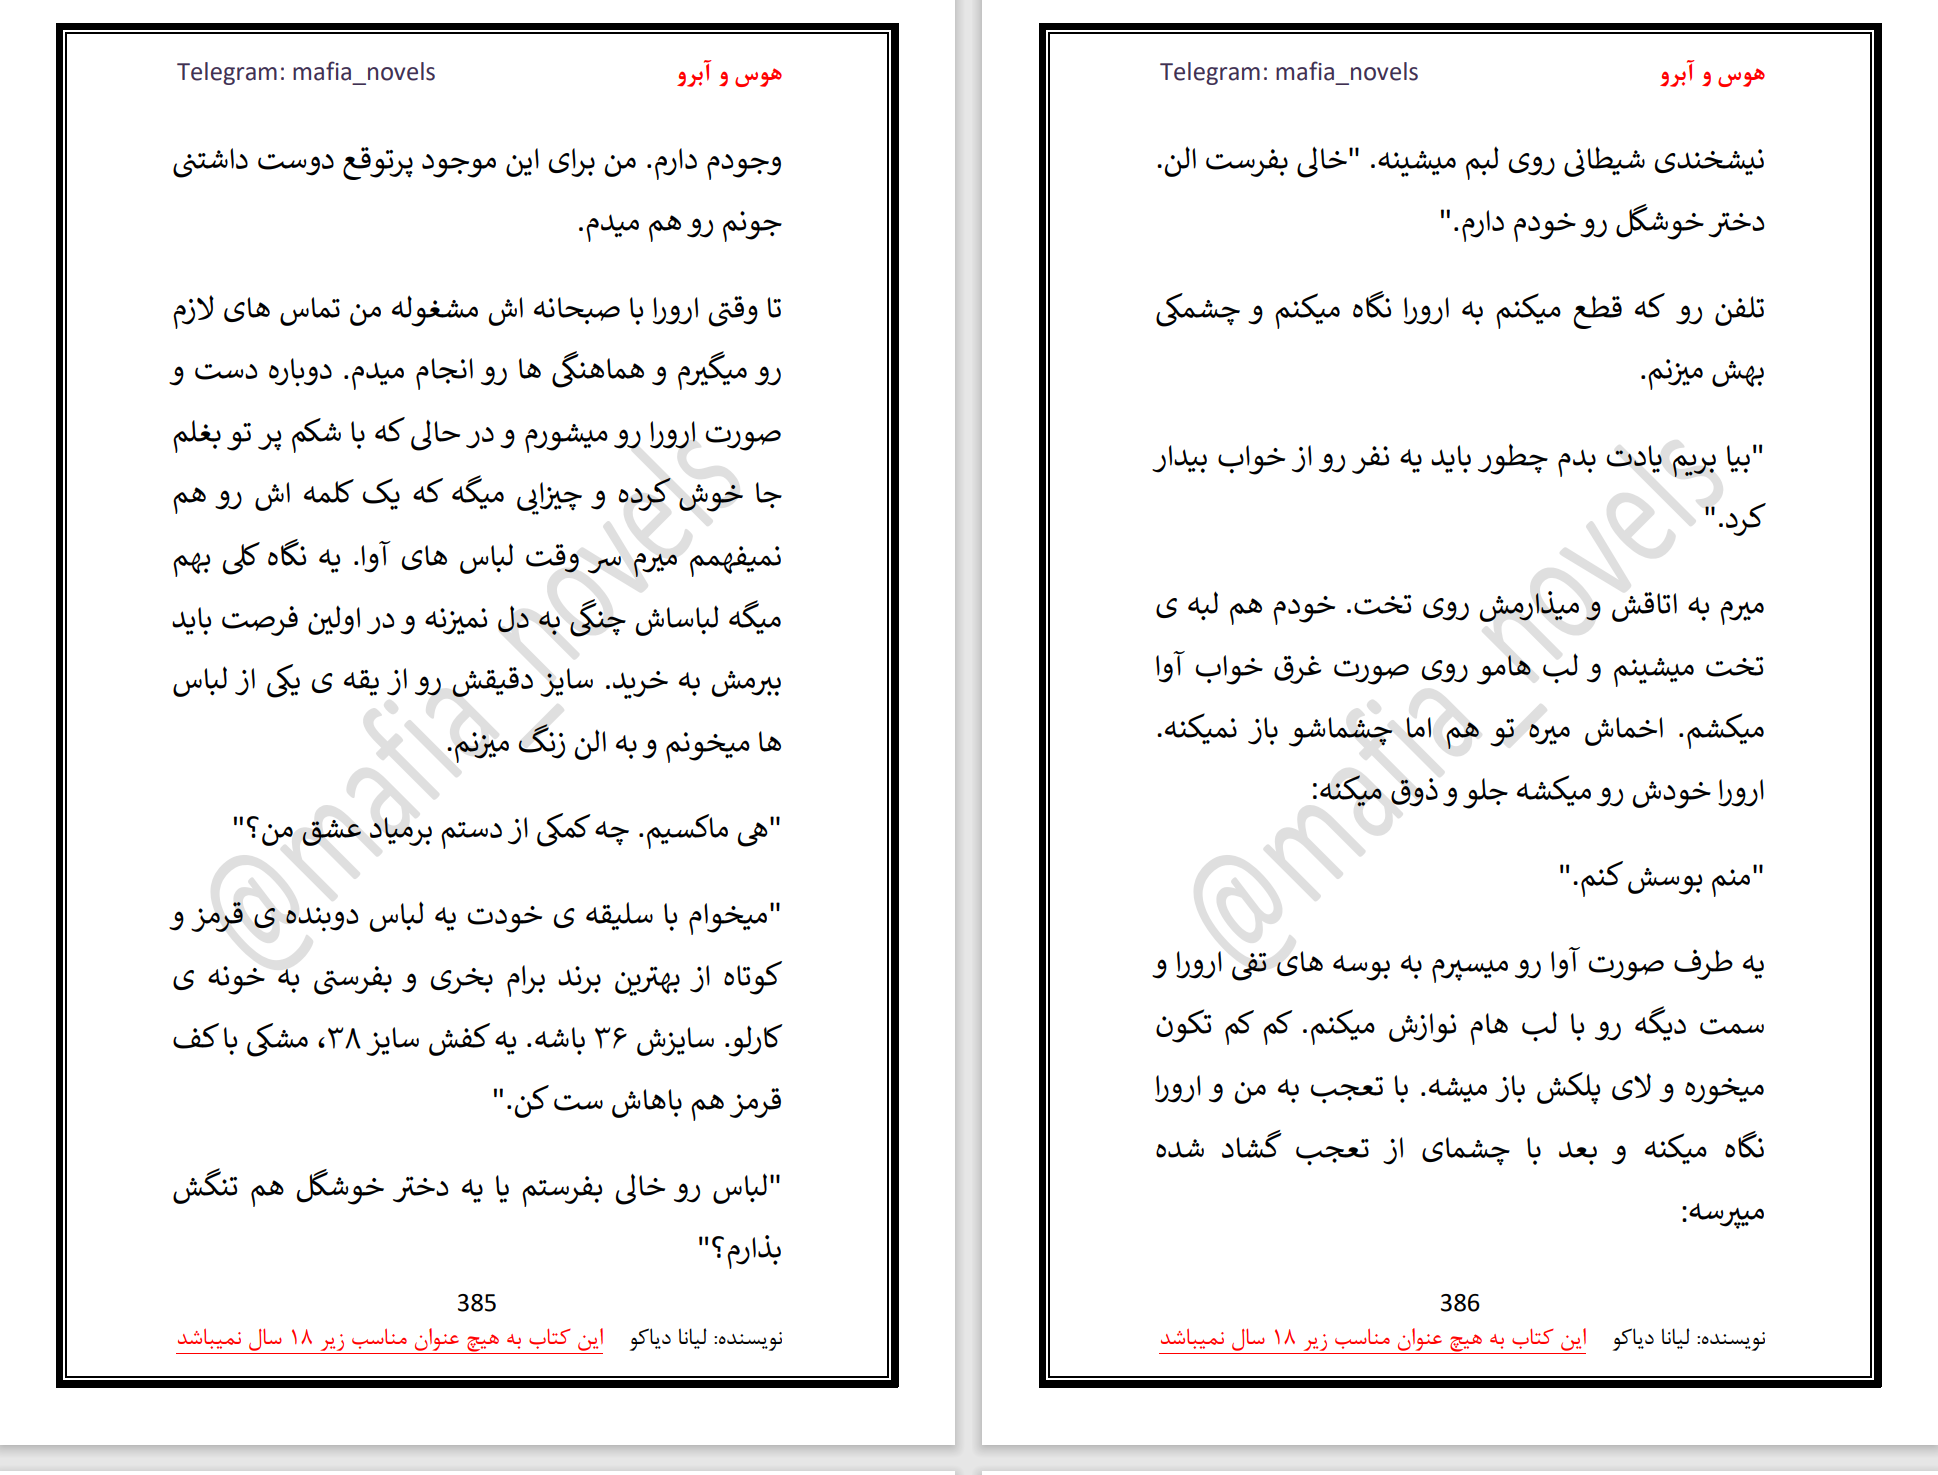 Telegram: mafia_novels هوس و آبرو
وجودم دارم. من برای این موجود پرتوقع دوست داشتنی
جونم رو هم میدم.
تا وقتی ارورا با صبحانه اش مشغوله من تماس های لازم
رو میگیرم و هماهنگی ها رو انجام میدم. دوباره دست و
صورت ارورا رو میشورم و در حالی که با شکم پر تو بغلم
جا خوش کرده و چیزایی میگه که یک کلمه اش رو هم
نمیفهمم میرم سر وقت لباس های آوا. یه نگاه کلی بهم
میگه لباساش چنگی به دل نمیزنه و در اولین فرصت باید
ببرمش به خرید. سایز دقیقش رو از یقه ی یکی از لباس
ها میخونم و به الن زنگ میزنم.
"هی ماکسیم. چه کمکی از دستم برمیاد عشق من؟"
"میخوام با سلیقه ی خودت یه لباس دوبنده ی قرمز و
کوتاه از بهترین برند برام بخری و بفرستی به خونه ی
کارلو. سایزش ۳۶ باشه. یه کفش سایز ۳۸، مشکی با کف
قرمز هم باهاش ست کن."
"لباس رو خالی بفرستم یا یه دختر خوشگل هم تنگش
بذارم؟"
385
نویسنده: لیانا دیاکو این کتاب به هیچ عنوان مناسب زیر ۱۸ سال نمیباشد
@mafia_novels
Telegram: mafia_novels هوس و آبرو
نیشخندی شیطانی روی لبم میشینه. "خالی بفرست الن.
دختر خوشگل رو خودم دارم."
تلفن رو که قطع میکنم به ارورا نگاه میکنم و چشمکی
بهش میزنم.
"بیا بریم یادت بدم چطور باید یه نفر رو از خواب بیدار
کرد."
میرم به اتاقش و میذارمش روی تخت. خودم هم لبه ی
تخت میشینم و لب هامو روی صورت غرق خواب آوا
میکشم. اخماش میره تو هم اما چشماشو باز نمیکنه.
ارورا خودش رو میکشه جلو و ذوق میکنه:
"منم بوسش کنم."
یه طرف صورت آوا رو میسپرم به بوسه های تفی ارورا و
سمت دیگه رو با لب هام نوازش میکنم. کم کم تکون
میخوره و لای پلکش باز میشه. با تعجب به من و ارورا
نگاه میکنه و بعد با چشمای از تعجب گشاد شده
میپرسه:
386
نویسنده: لیانا دیاکو این کتاب به هیچ عنوان مناسب زیر ۱۸ سال نمیباشد
@mafia_novels